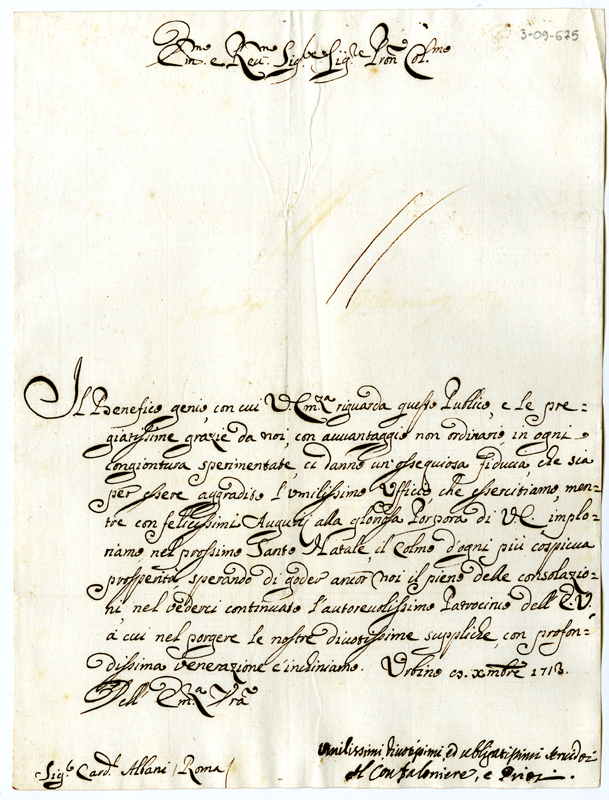 3-09-675
Em.mo e Rev.mo Sig.re Sig.re Pron Col.mo
Il Benefico genio, con cui V. Em.za riguarda questo Publico, e le pre=
giatissime grazie da noi, con avvantaggio non ordinario in ogni
congiontura sperimentate, ci danno un'ossequiosa fiducia, che sia
per essere aggradito l'umilissimo Ufficio, che essercitiamo, men=
tre con felicissimi Augurij alla gloriosa Porpora di V.E. implo=
riamo nel prossimo Santo Natale, il Colmo d'ogni più cospicua
prosperità, sperando di goder ancor noi il pieno delle consolazio=
ni nel vederci continuato l'autorevolissimo Patrocinio dell'E.V.
à cui nel porgere le nostre divotissime suppliche, con profon=
dissima venerazione c'inchiniamo. Urbino Xmbre 1713.
Dell' Em.za Vra
Umilissimi divotissimi, ed obligatissimi Servidori
Sig.r Card. Albani / Roma /
Il Confaloniere, e Priori.